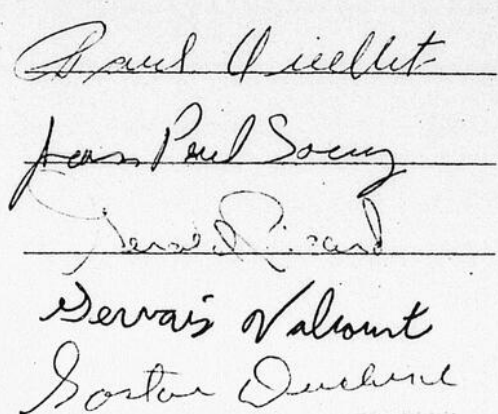 Paul Ouellet
Jean Paul Soucy
Gérald Ricard
Gervais Valcourt
Gaston Duchesne